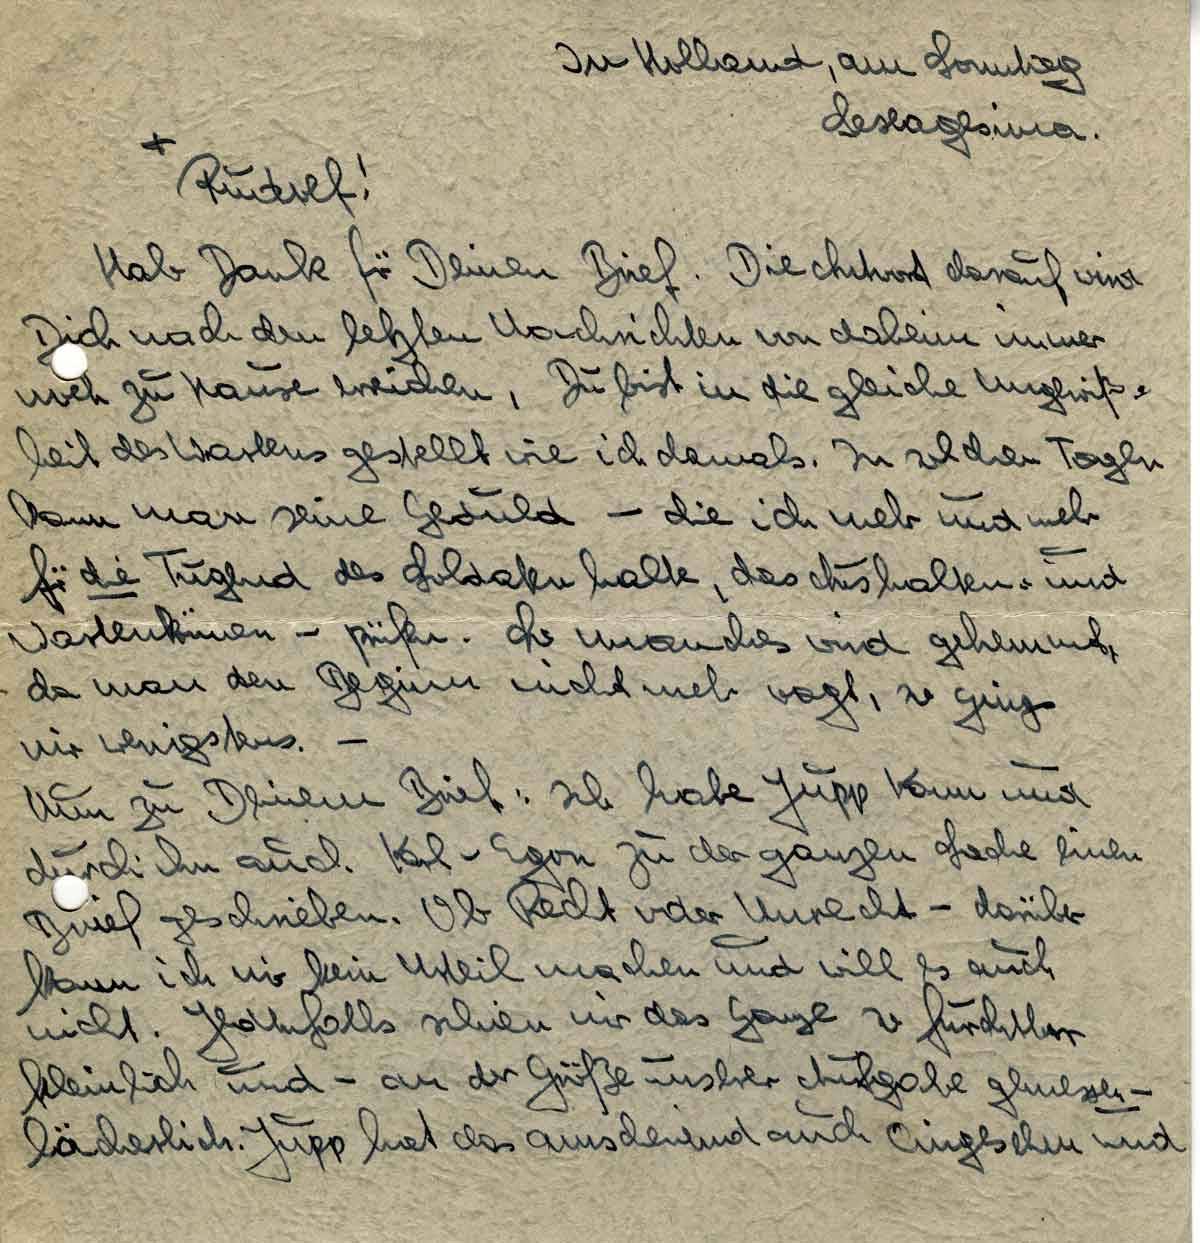 In Holland, am Sonntag
Sexagesima.
+
Rudolf!
Hab Dank für Deinen Brief. Die Antwort darauf wird
Dich nach den letzten Nachrichten von daheim immer
noch zu Hause erreichen, Du bist in die gleiche Ungewiß-
heit des Wartens gestellt wie ich damals. In solchen Tagen
kann man seine Geduld – die ich mehr und mehr
für die Tugend des Soldaten halte, das Aushalten- und
Wartenkönnen – prüfen. So manches wird gehemmt,
da man den Beginn nicht mehr wagt, so ging's
mir wenigstens. –
Nun zu Deinem Brief: Ich habe Jupp Kann und
durch ihn auch Karl-Egon zu der ganzen Sache einen
Brief geschrieben. Ob Recht oder Unrecht – darüber
kann ich mir kein Urteil machen und will es auch
nicht. Jedenfalls schien mir das Ganze so furchtbar
kleinlich und – an der Größe unserer Aufgabe gemessen –
lächerlich. Jupp hat das anscheinend auch eingesehen und